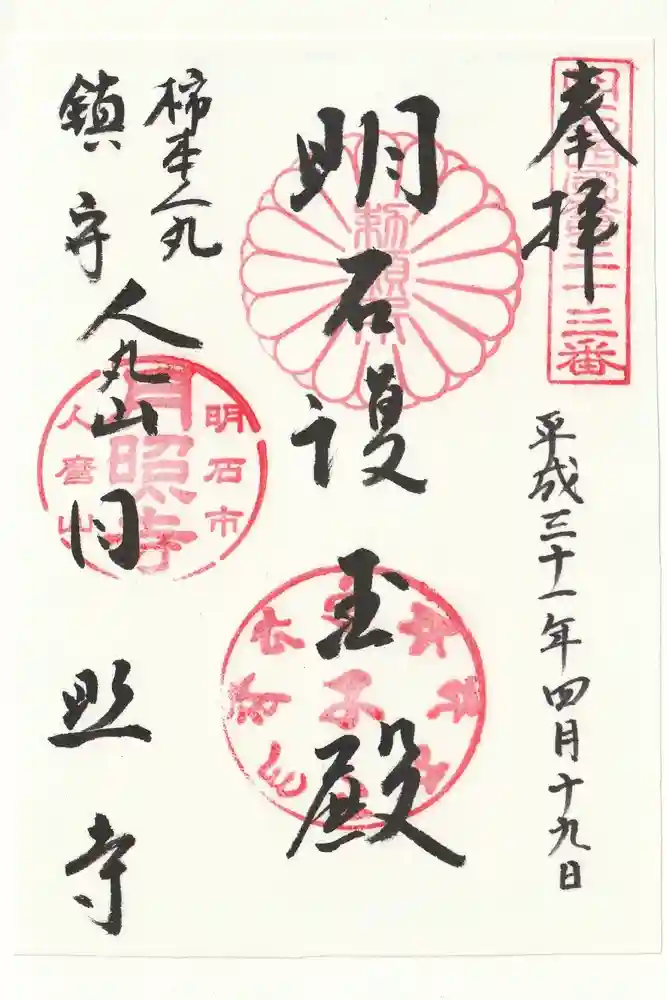 奉拝
平成三十一年四月十九日
勅願所
明石護玉殿
柿本人丸
鎮守
人丸山月照寺
明石市
月照寺
人麿山